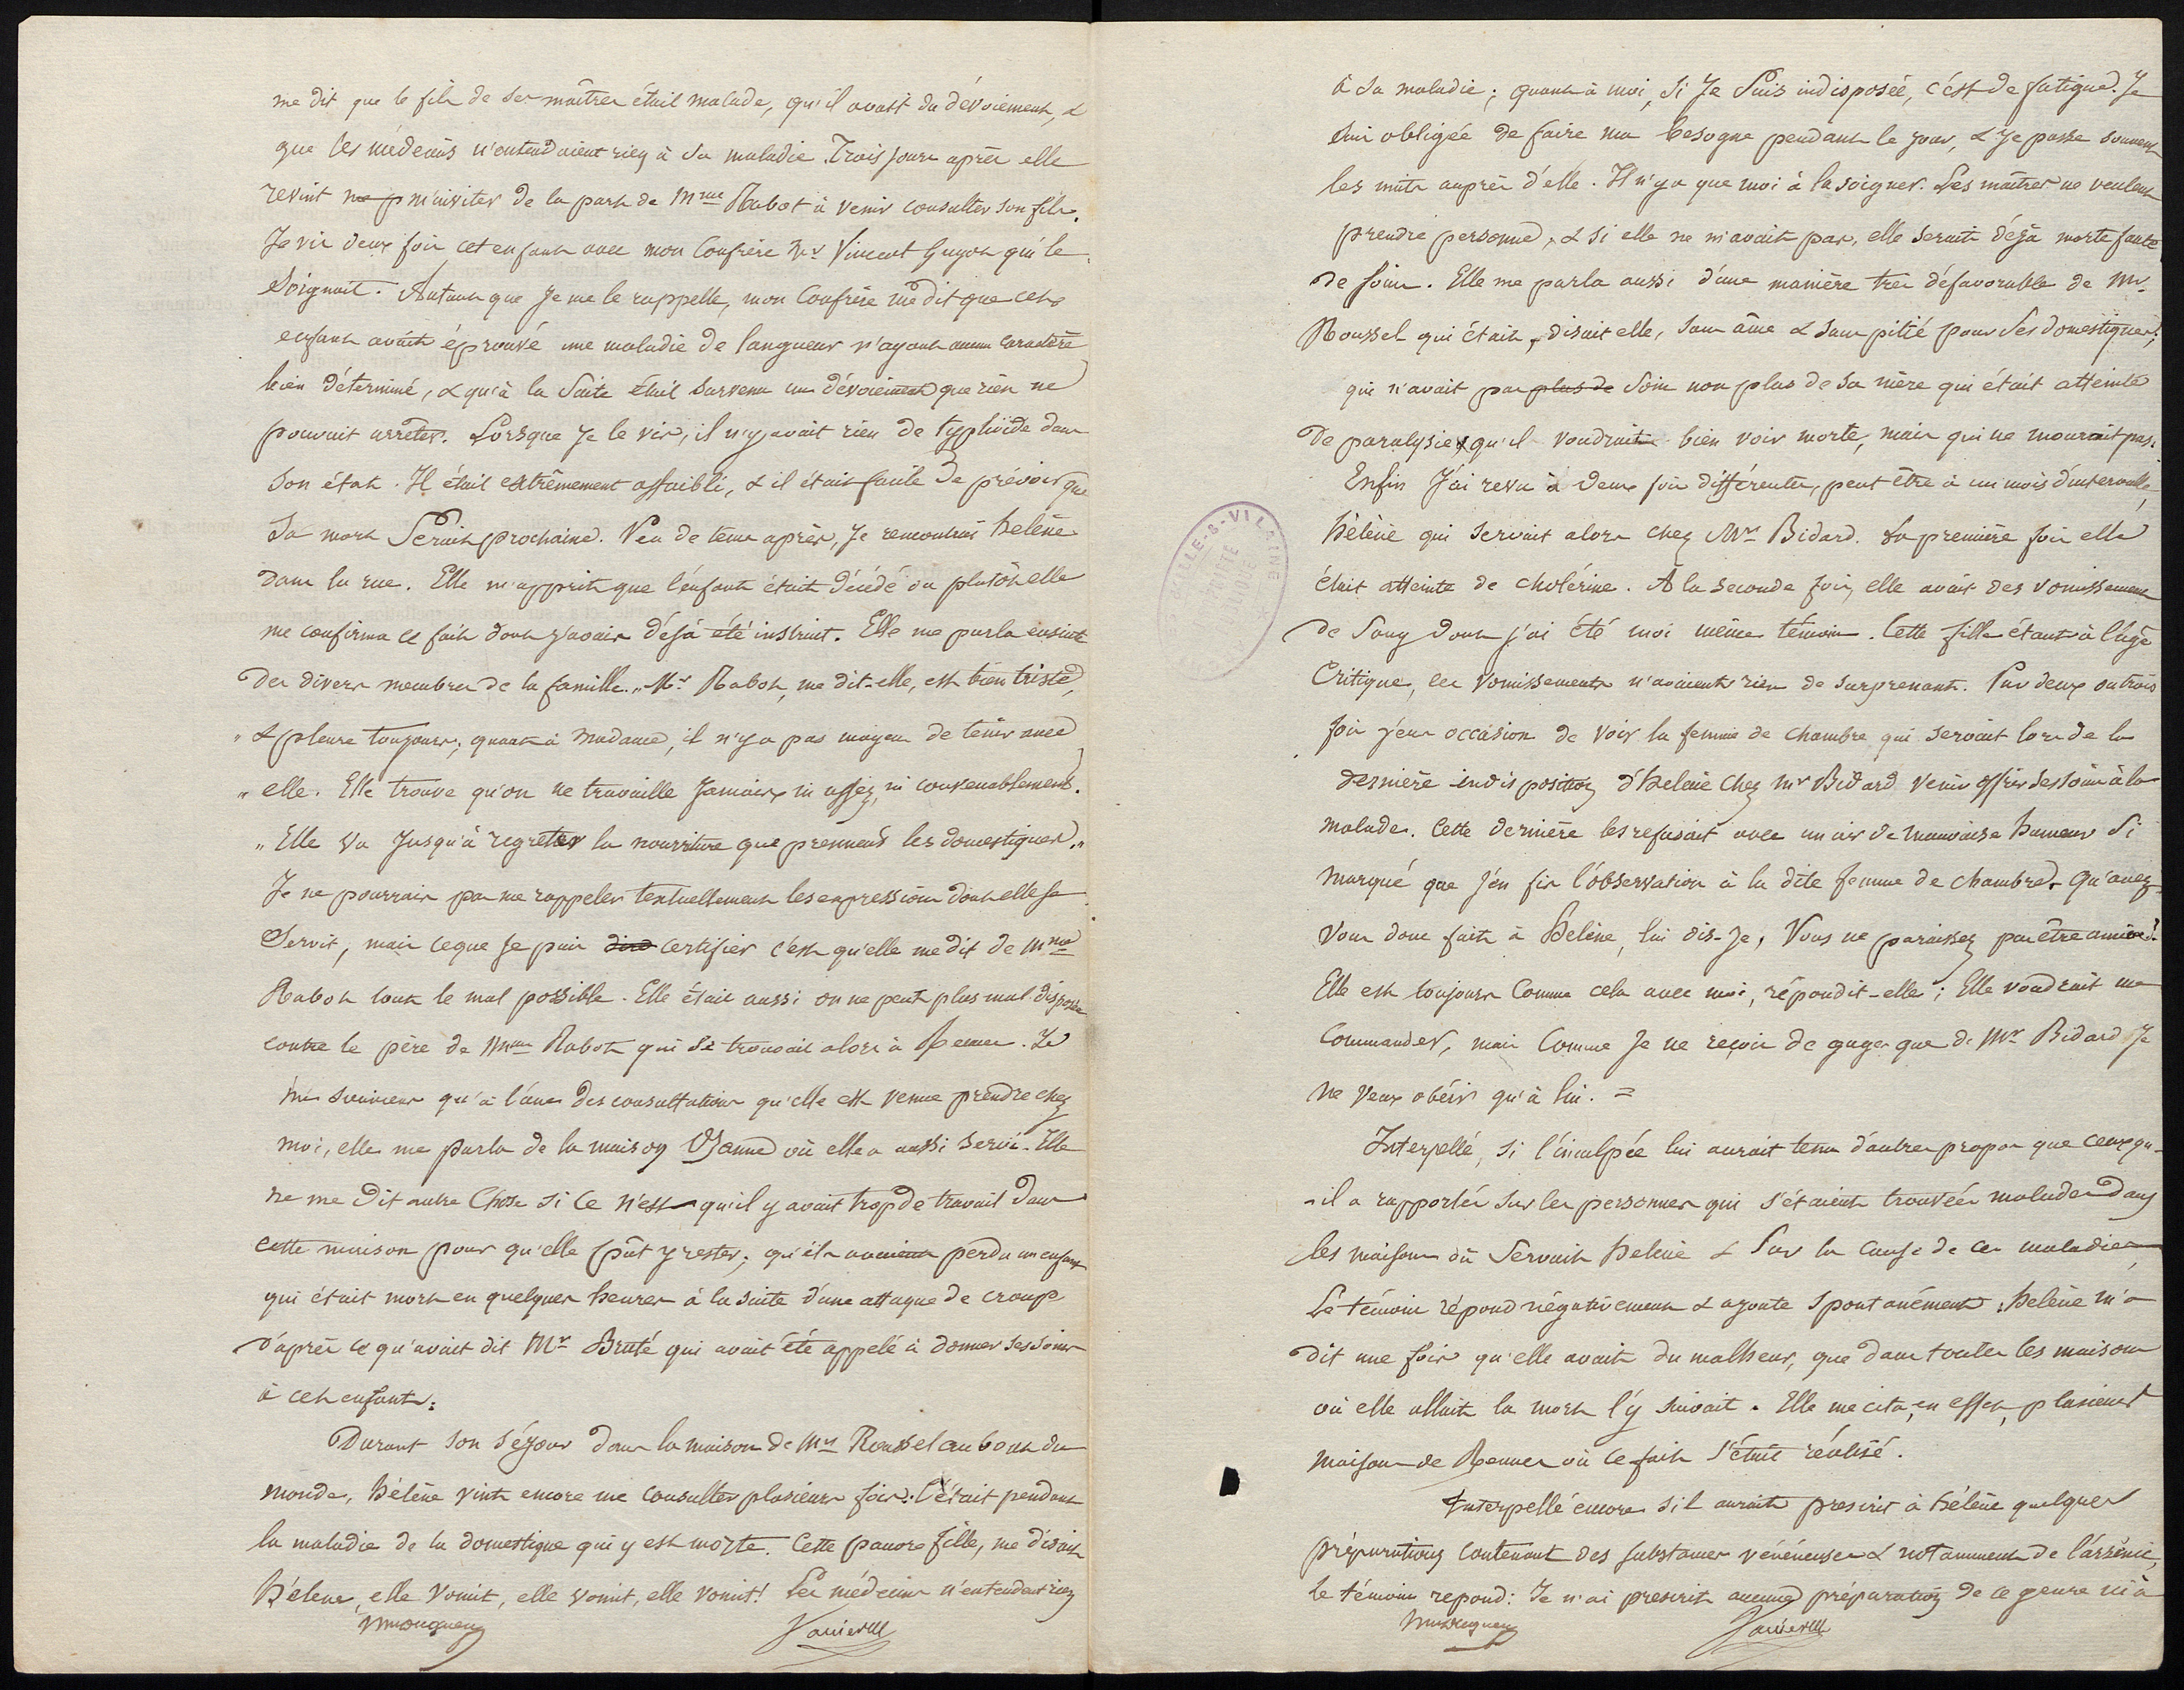 me dit que le fils de ses maîtres était malade, qu'il avait du dévoiement, &
que les médecins n'entendaient rien à sa maladie. Trois jours après elle
revint ne p m'inviter de la part de Mme Rabot à venir consulter son fils.
Je vis deux fois cet enfant avec mon Confrère Mr Vincent Guyot qui le
soignait. Autant que je me le rappelle, mon Confrère me dit que cet
enfant avait éprouvé une maladie de langueur n'ayant aucun caractère
bien déterminé, & qu'à la suite était survenu un dévoiement que rien ne
pouvait arrêter. Lorsque je le vis, il n'y avait rien de typhoïde dans
son état. Il était extrêmement affaibli, & il était facile de prévoir que
sa mort serait prochaine. Peu de tems après, je rencontrai hélène
dans la rue. Elle m'apprit que l'enfant était décédé ou plutôt elle
me confirma ce fait dont j'avais déjà été instruit. Elle me parla ensuite
des divers membres de la famille. „ Mr Rabot, me dit-elle, est bien triste,
„ & pleure toujours; quant à Madame, il n'y a pas moyen de tenir avec
„ elle. Elle trouve qu'on ne travaille jamais, ni assez, ni convenablement.
„ Elle va jusqu'à regretter la nourriture que prennent les domestiques.„
Je ne pourrais pas me rappeler textuellement les expressions dont elle se
servit, mais ce que je puis dire certifier c'est qu'elle me dit de Mme
Rabot tout le mal possible. Elle était aussi on ne peut plus mal disposée
contre le père de Mme Rabot qui se trouvait alors à Rennes. Je
me souviens qu'à l'une des consultations qu'elle est venue prendre chez
moi, elle me parla de la maison Ozanne où elle a aussi servi. Elle
ne me dit autre chose si ce n'est qu'il y avait trop de travail dans
cette maison pour qu'elle pût y rester; qu'ils avaient perdu un enfant
qui était mort en quelques heures à la suite d'une attaque de croup
d'après ce qu'avait dit Mr Bruté qui avait été appelé à donner ses soins
à cet enfant.
Durant son séjour dans la maison de Mr Roussel au bout du
monde, hélène vint encore me consulter plusieurs fois. C'était pendant
la maladie de la domestique qui y est morte. Cette pauvre fille, me disait
hélène, elle vomit, elle vomit, elle vomit! Les médecins n'entendent rien
à sa maladie; quant à moi, si je suis indisposée, c'est de fatigue. Je
suis obligée de faire ma besogne pendant le jour, & je passe souvent
les nuits auprès d'elle. Il n'y a que moi à la soigner. Les maîtres ne veulent
prendre personne, & si elle ne m'avait pas, elle serait déjà morte faute
de soins. Elle me parla aussi d'une manière très défavorable de Mr
Roussel qui était, disait elle, sans âme & sans pitié pour ses domestiques;
qui n'avait pas plus de soin non plus de sa mère qui était atteinte
de paralysie & qu'il voudrait bien voir morte, mais qui ne mourait pas.
Enfin j'ai revu à deux fois différentes, peut être à un mois d'intervalle,
hélène qui servait alors chez Mr Bidard. La première fois elle
était atteinte de cholérine. À la seconde fois, elle avait des vomissements
de sang dont j'ai été moi même témoin. Cette fille étant à l'âge
critique, ces vomissements n'avaient rien de surprenant. Par deux ou trois
fois j'eus occasion de voir la femme de chambre qui servait lors de la
dernière indisposition d'hélène chez Mr Bidard venir offrir ses soins à la
malade. Cette dernière les refusait avec un air de mauvaise humeur si
marqué que j'en fis l'observation à la dite femme de chambre. Qu'avez-
vous donc fait à hélène, lui dis-je, Vous ne paraissez pas être amies?
Elle est toujours comme cela avec moi, répondit-elle; Elle voudrait me
commander, mais comme je ne reçois de gages que de Mr Bidard je
ne veux obéir qu'à lui. =
Interpellé, si l'inculpée lui aurait tenu d'autres propos que ceux qu-
-il a rapportés sur les personnes qui s'étaient trouvées malades dans
les maisons où servait hélène & sur la cause de ces maladies,
Le témoin répond négativement & ajoute spontanément, hélène m'a
dit une fois qu'elle avait du malheur, que dans toutes les maisons
où elle allait la mort l'y suivait. Elle me cita, en effet, plusieurs
maisons de Rennes où ce fait s'était réalisé.
Interpellé encore s'il aurait prescrit à hélène quelques
préparations contenant des substances vénéneuses & notamment de l'arsénic,
le témoin repond: Je n'ai prescrit aucune préparation de ce genre ni à